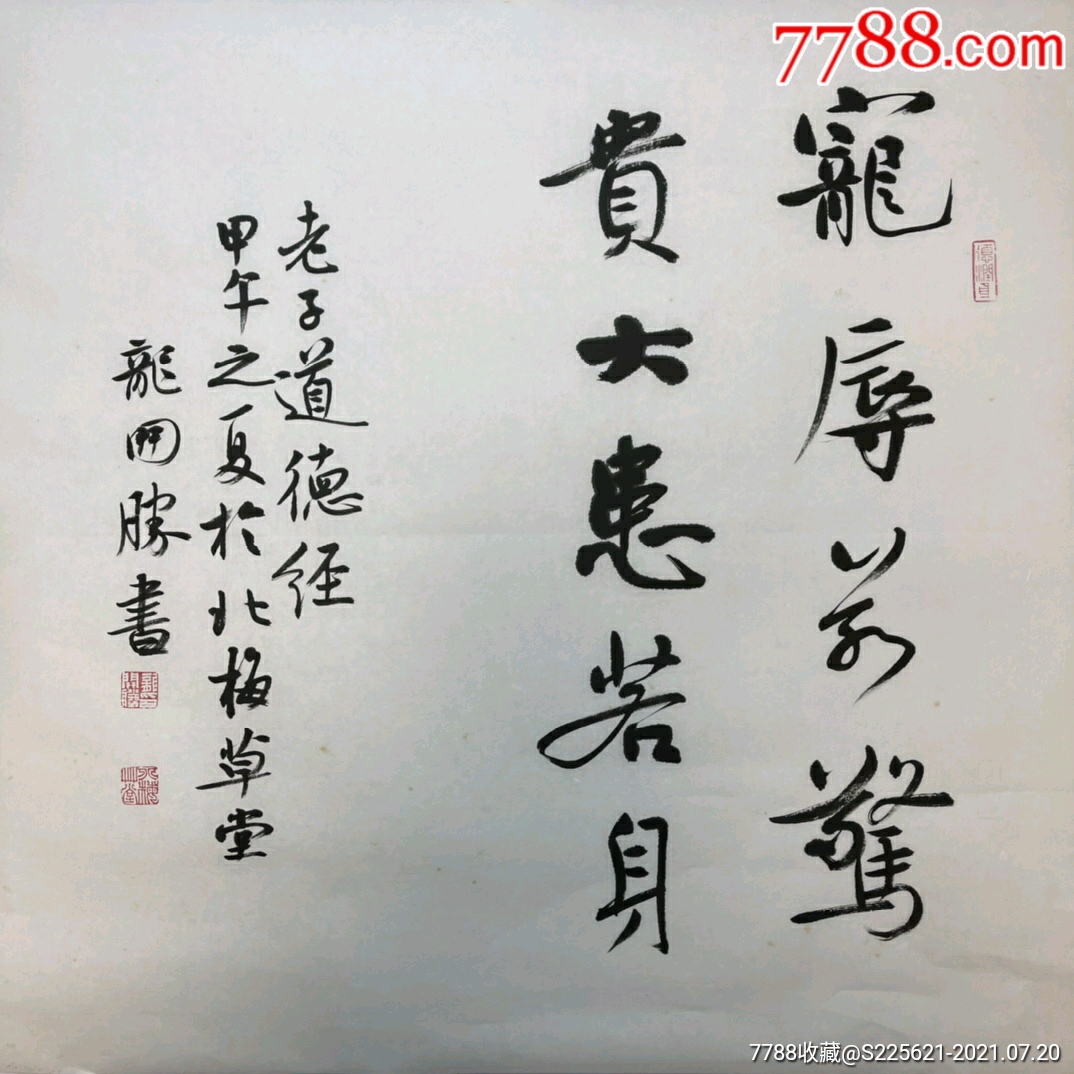 7788.com
寵辱若驚
貴大患若身
老子道德经
甲午之夏於北梅草堂
龍開勝書
7788收藏@S225621-2021.07.20